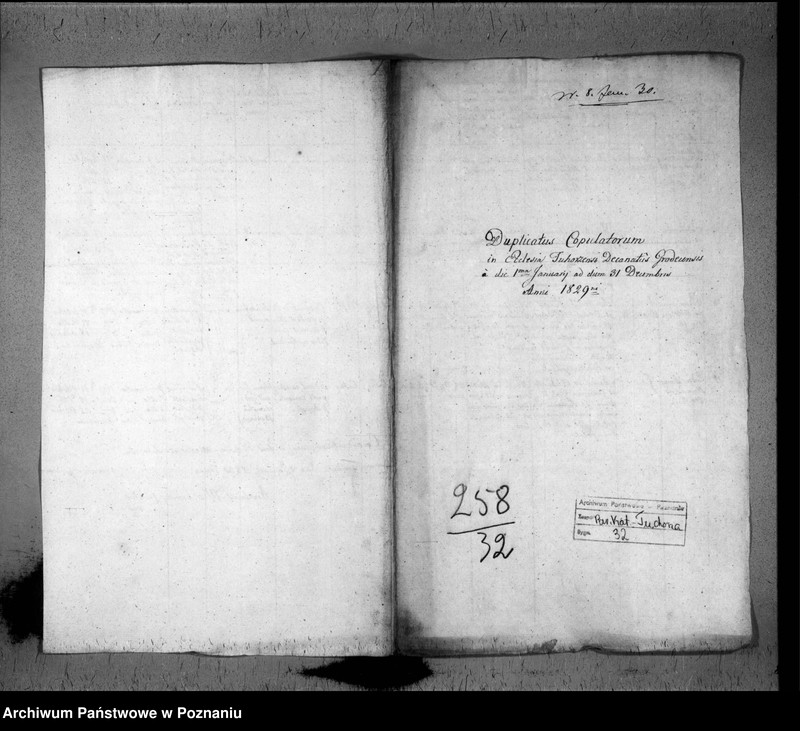 8. Janu. 30.
Duplicatus Copulatorum
in Eclesia Tuhorzensi Decanatûs Grodecensis
à die 1ma January ad diem 31 Decembris
Anni 1829ni
258
32
Archiwum Państwowe – Poznańie
Zespół Par. Kat. Tuchorza
Sygn. 32
Archiwum Państwowe w Poznaniu